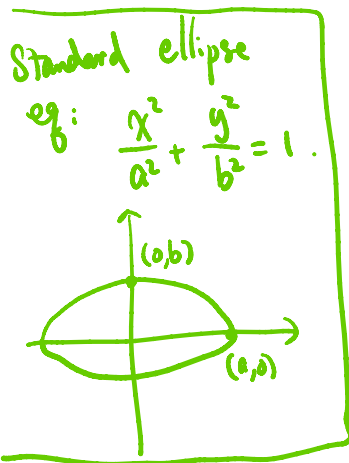 Standard ellipse
eq: x²/a² + y²/b² = 1.
(0,b)
(a,0)